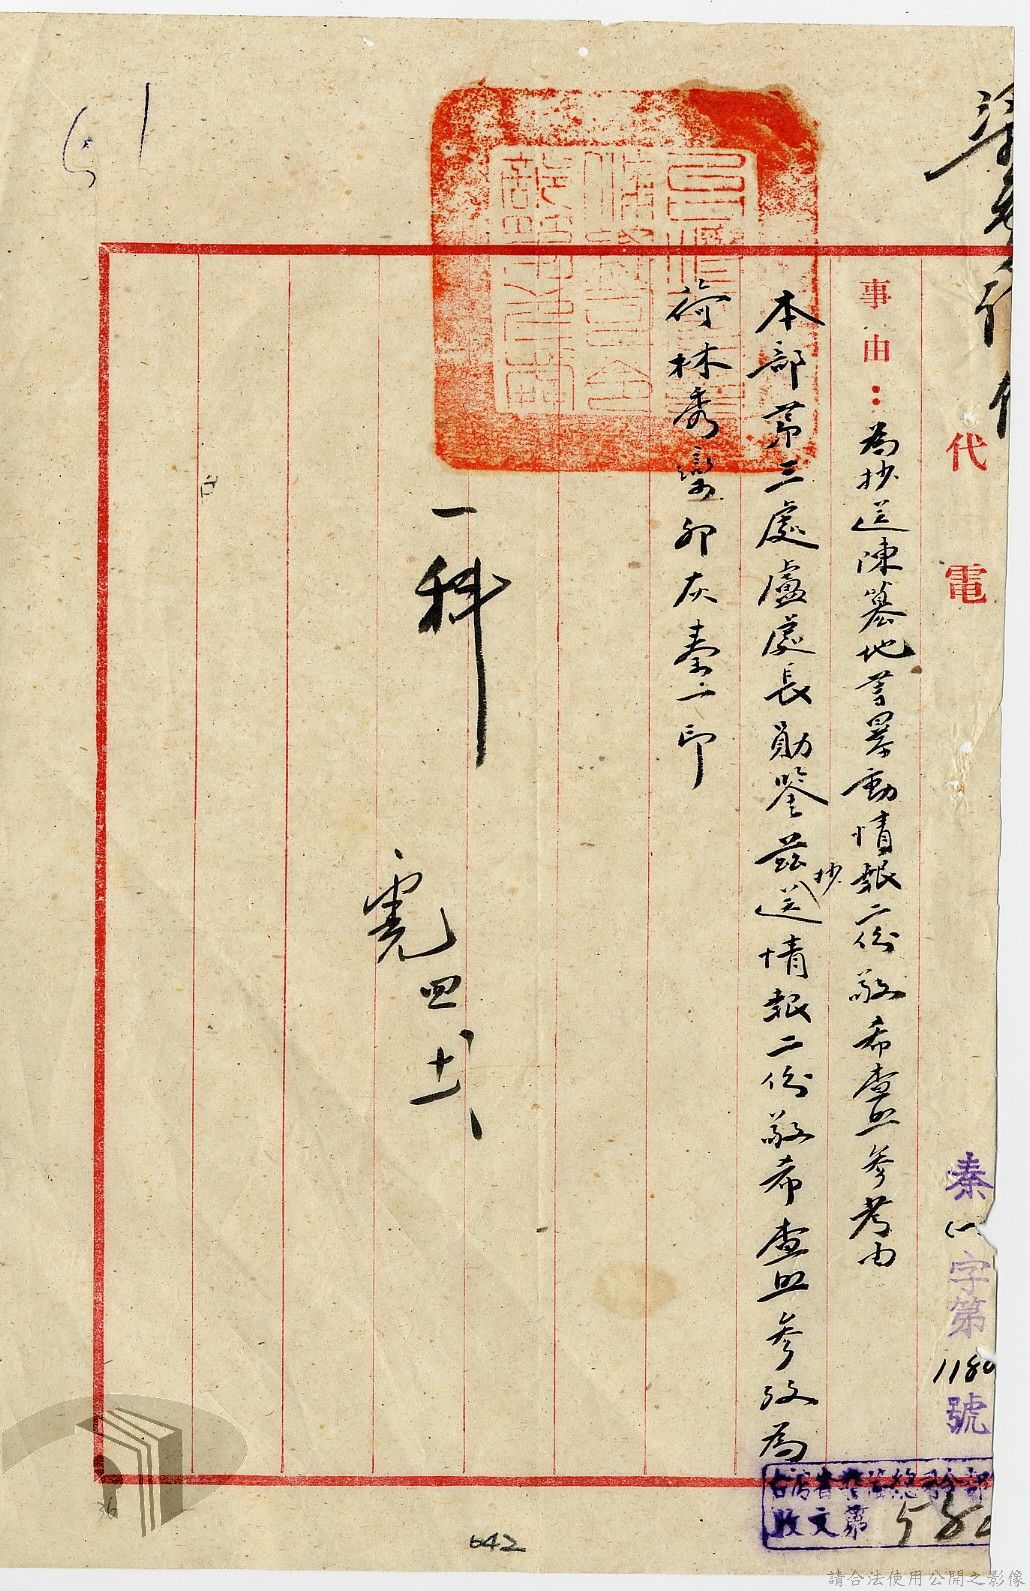 代電
秦(一)字第118號
事由：為抄送陳墓地等暴動情報二份敬希查照參考由
本部第三處盧處長勛鑒茲抄送情報二份敬希查照參攷為
荷林秀欒卯灰秦一印
一科
四十一
台灣省警備總司令部
收文第58
51
642
請合法使用公開之影像